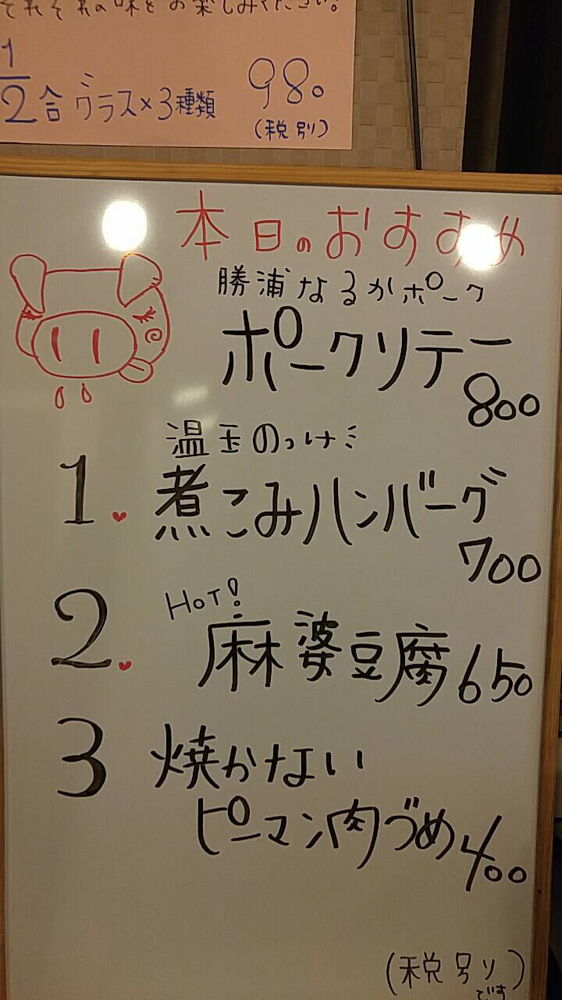 それぞれの味をお楽しみください。
1/2合グラス×3種類 980
(税別)
本日のおすすめ
勝浦なるかポーク
ポークソテー
800
温玉のっけミ
1. 煮こみハンバーグ
700
HOT!
2. 麻婆豆腐 650
3 焼かない
ピーマン肉づめ 400
(税別)
です